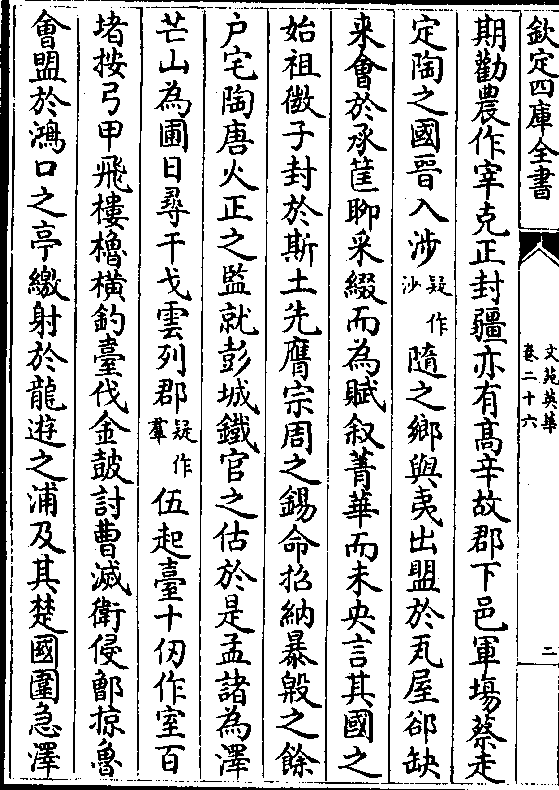 欽定四庫全書
文苑英華
卷二十六
二
期勸農作宰克正封疆亦有高辛故郡下邑軍塲蔡走
定陶之國晉入涉疑作沙隨之鄉與夷出盟於瓦屋郤缺
来會於承筐聊采綴而為賦叙菁華而未央言其國之
始祖微子封於斯土先膺宗周之錫命招納暴殷之餘
户宅陶唐火正之監就彭城鐵官之估於是孟諸為澤
芒山為圃日尋干戈雲列郡疑作羣伍起臺十仞作室百
堵按弓甲飛樓櫓橫釣臺伐金鼓討曹滅衛侵鄫掠魯
會盟於鴻口之亭繳射於龍遊之浦及其楚國圍急澤